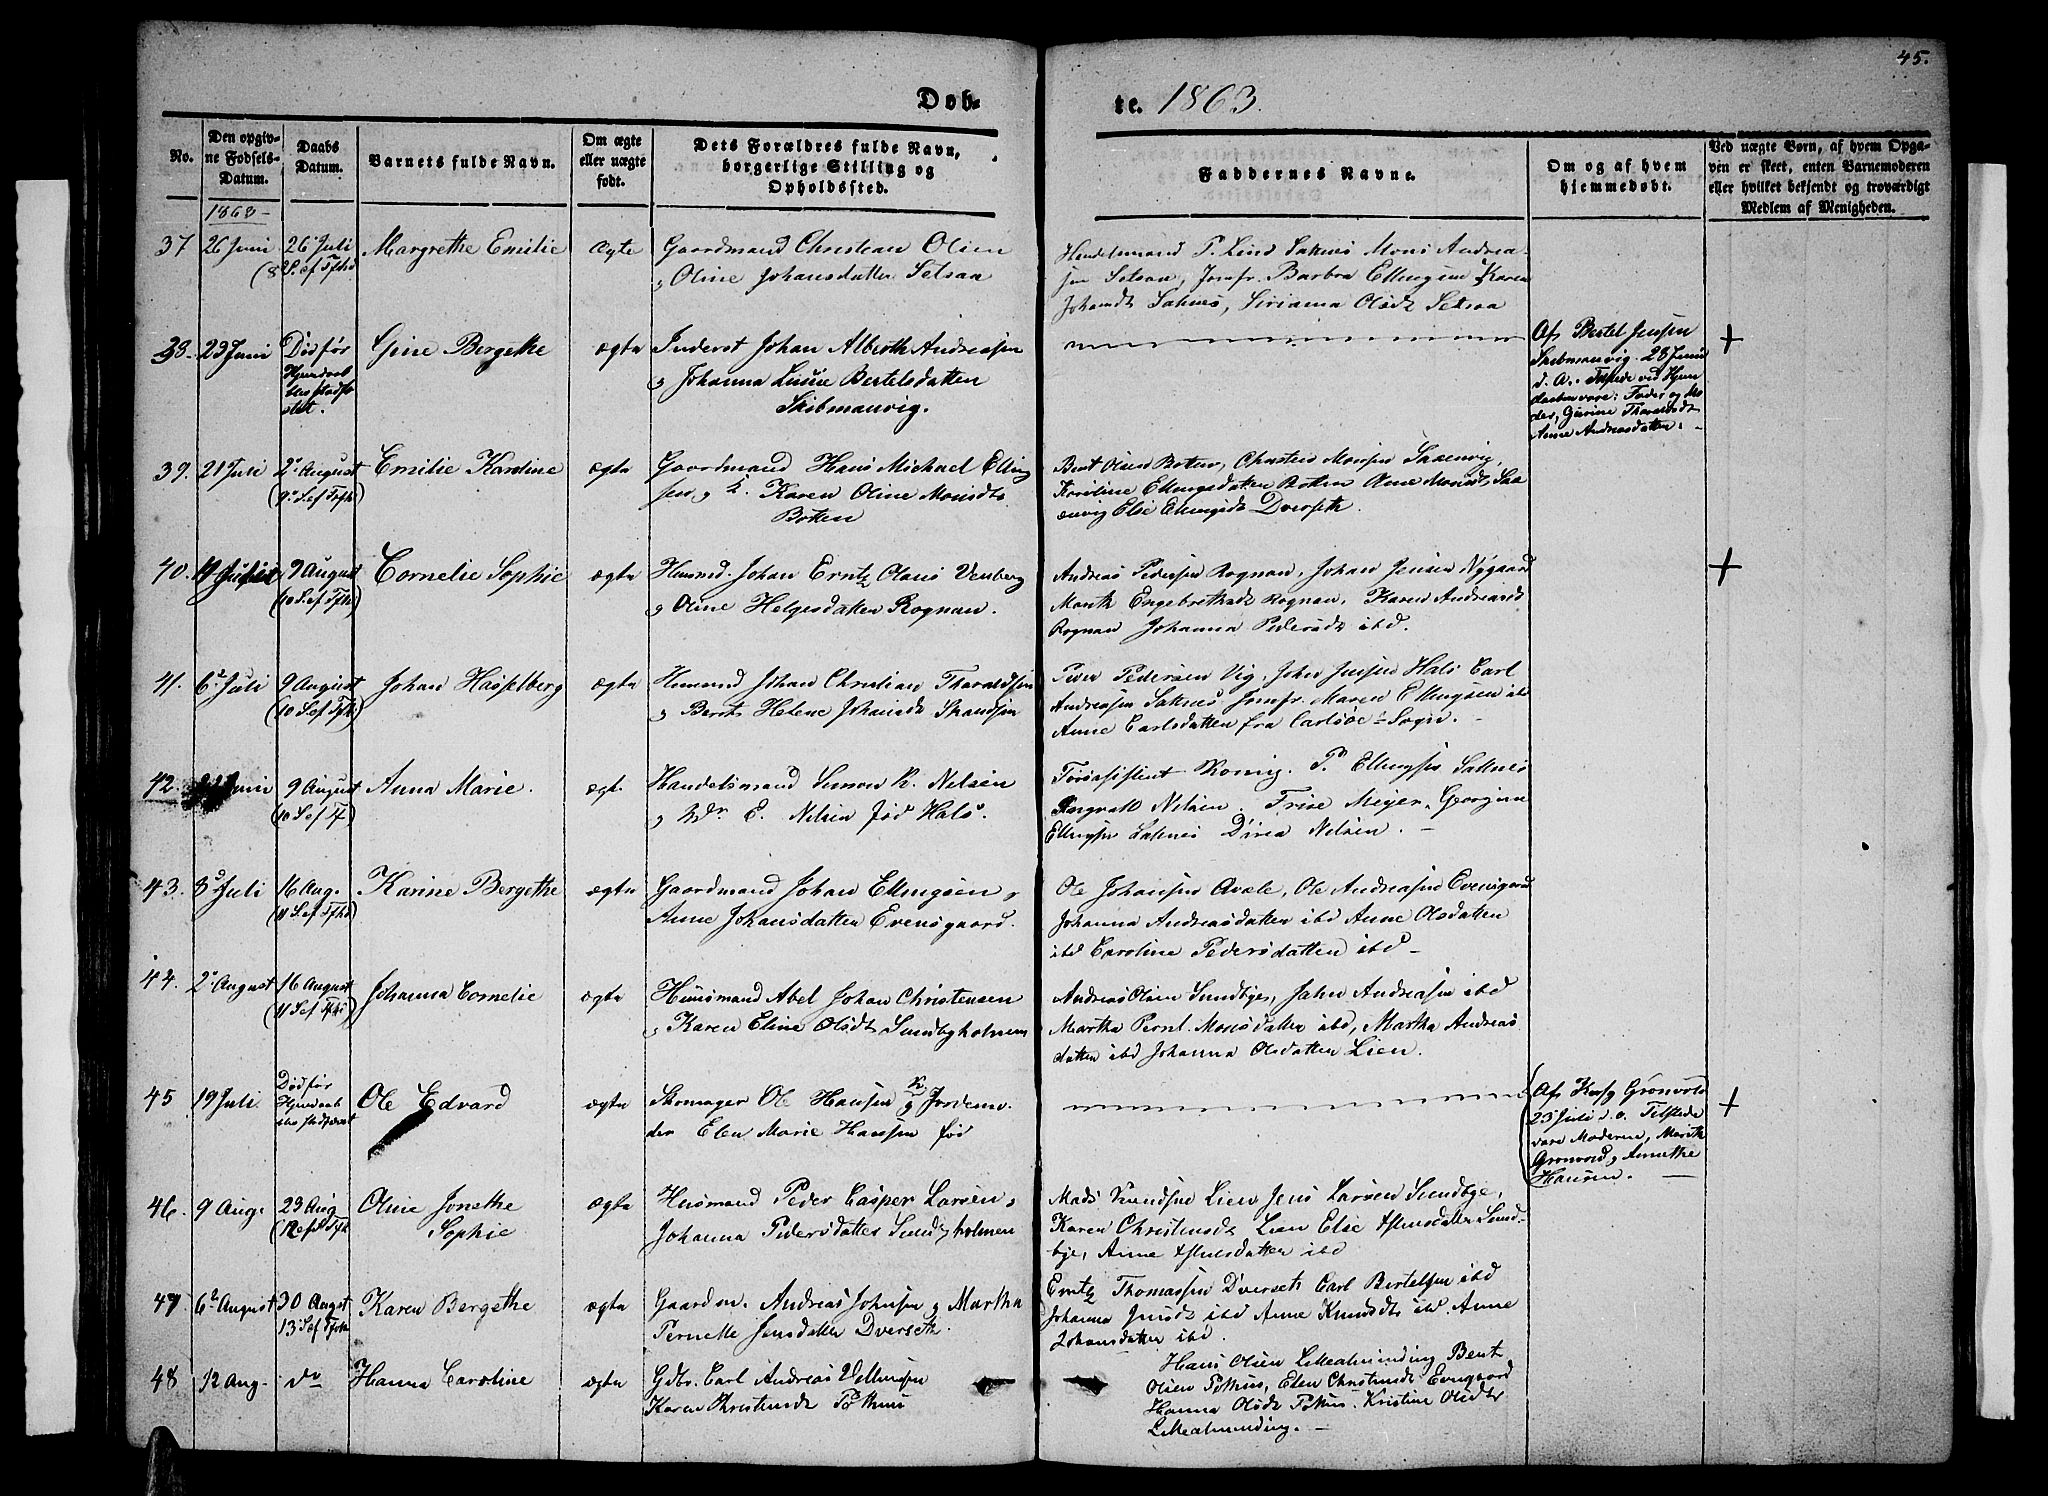 45.
Døb-
te. 1863.
No.
Den opgiv-
ne Fødsels-
Datum.
Daabs
Datum.
Barnets fulde Navn.
Om ægte
eller uægte
født.
Dets Forældres fulde Navn,
borgerlige Stilling og
Opholdssted.
Faddernes Navne.
Om og af hvem
hjemmedøbt.
Ved uægte Børn, af hvem Opga-
ven er skeet, enten Barnemoderen
eller hvilket bekjendt og troværdigt
Medlem af Menigheden.
1863
37 26 Juni 26 Juli Margrethe Emilie ægte Gaardmand Christian Olsen
(8 S. ef Tfhd
Oline Johansdatter Setsaa
Handelsmand P. Lund Saltnes Mons Andrea-
sen Setsaa, Jomfr. Barbra Ellingsen Karen
Johansdt Saltnes, Siriana Olsdt Setsaa
38. 23 Juni Død før Gine Bergethe ægte Inderst Johan Albreth Andreasen
Johanna Bertelsdatter
Skibmanvig.
Af Bertel Jensen
Skibmanvig 28 Juni
d. A.
Anne Andreasdatter.
39. 21 Juli 2 August Emilie Karoline ægte Gaardmand Hans Michael Elling
(9 S. ef Tfh)
sen, K. Karen Oline Monsdt
Botten
Bent Olsen Botten, Christen Monsen Saxenvig,
Karoline Ellingsdatter Botten Anne Monsdt, Sax
envig Else Ellingsdt Dverseth.
40. 9 August Cornelie Sophie ægte Husmd. Johan Erntz Olaus Venberg
(10 S. ef Tfh)
Oline Helgesdatter Rognan.
Andreas Pedersen Rognan, Johan Jensen Nygaard
Marith Engebrethsdt Rognan, Karen Andreasdt
Rognan Johanna Pedersdt ibd.
41. 6 Juli 9 August Johan Hasselberg ægte Husmand Johan Christian Tharaldsen
(10 S. ef Tfh)
Berit Helene Johansdt
Peder Pedersen Vig, John Jensen Hals Carl
Andreasen Saltnes Jomfr. Maren Ellingsen ibd
Anne Carlsdatter fra Carlsøe Sogn.
42. Juni 9 August Anna Marie. ægt. Handelsmand Simon K. Nelsen
(10 S ef Tf)
E. Nelsen fød Hals.
P. Ellingsen Saltnes
Nelsen. Meyer. Georgine
Ellingsen Saltnes Dina Nelsen.
43. 8 Juli 16 Aug. Karine Bergethe ægte Gaardmand Johan Ellingsen,
(11 S. ef Tfhd)
Anne Johansdatter Evensgaard.
Ole Johansen Ole Andreasen Evensgaard
Johanna Andreasdatter ibd Anne Olsdatter
ibd Caroline Pedersdatter ibd
44. 2 August 16 August Johanna Cornelie ægte Huusmand Abel Johan Christensen
(11 S ef Tfh)
Karen Eline Olsdt Sundbyholmen
Andreas Olsen Sundbye, Jahn Andreasen ibd
Martha Pernl. Monsdatter ibd, Martha Andreas
datter ibd Johanna Olsdatter Lien.
45 19 Juli. Død før Ole Edvard ægte Skomager Ole Hansen
Elen Marie Hansen fød
Af Grønvold
23 Juli d. A. Tilstede
vare Moderen, Marith
Grønvold, Annethe
Hansen.
46. 9 Aug. 23 Aug Oline Jonethe ægte Husmand Peder Casper Larsen,
(12 S ef Tfh
Sophie
Johanna Pedersdatter Sundbyholmen
Mads Knudsen Lien Jens Larsen Sundbye,
Karen Christensdt Lien Else Sund-
bye, Anne ibd
47. 6 August 30 Augst Karen Bergethe ægte Gaardm. Andreas Johnsen Martha
13 S ef Tfh
Pernelle Jensdatter Dverseth.
Erntz Thomassen Dverseth Carl Bertelsen ibd
Johanna Jensdt ibd Anne Knudsdt ibd. Anne
Johansdatter ibd.
48 12 Aug. do Hanna Caroline ægte Gdbr. Carl Andreas
Karen Christensdt Pothus
Hans Olsen Bent
Olsen Pothus, Elen Christensdt Evensgaard
Hanna Olsdt Pothus. Kristine Olsdt